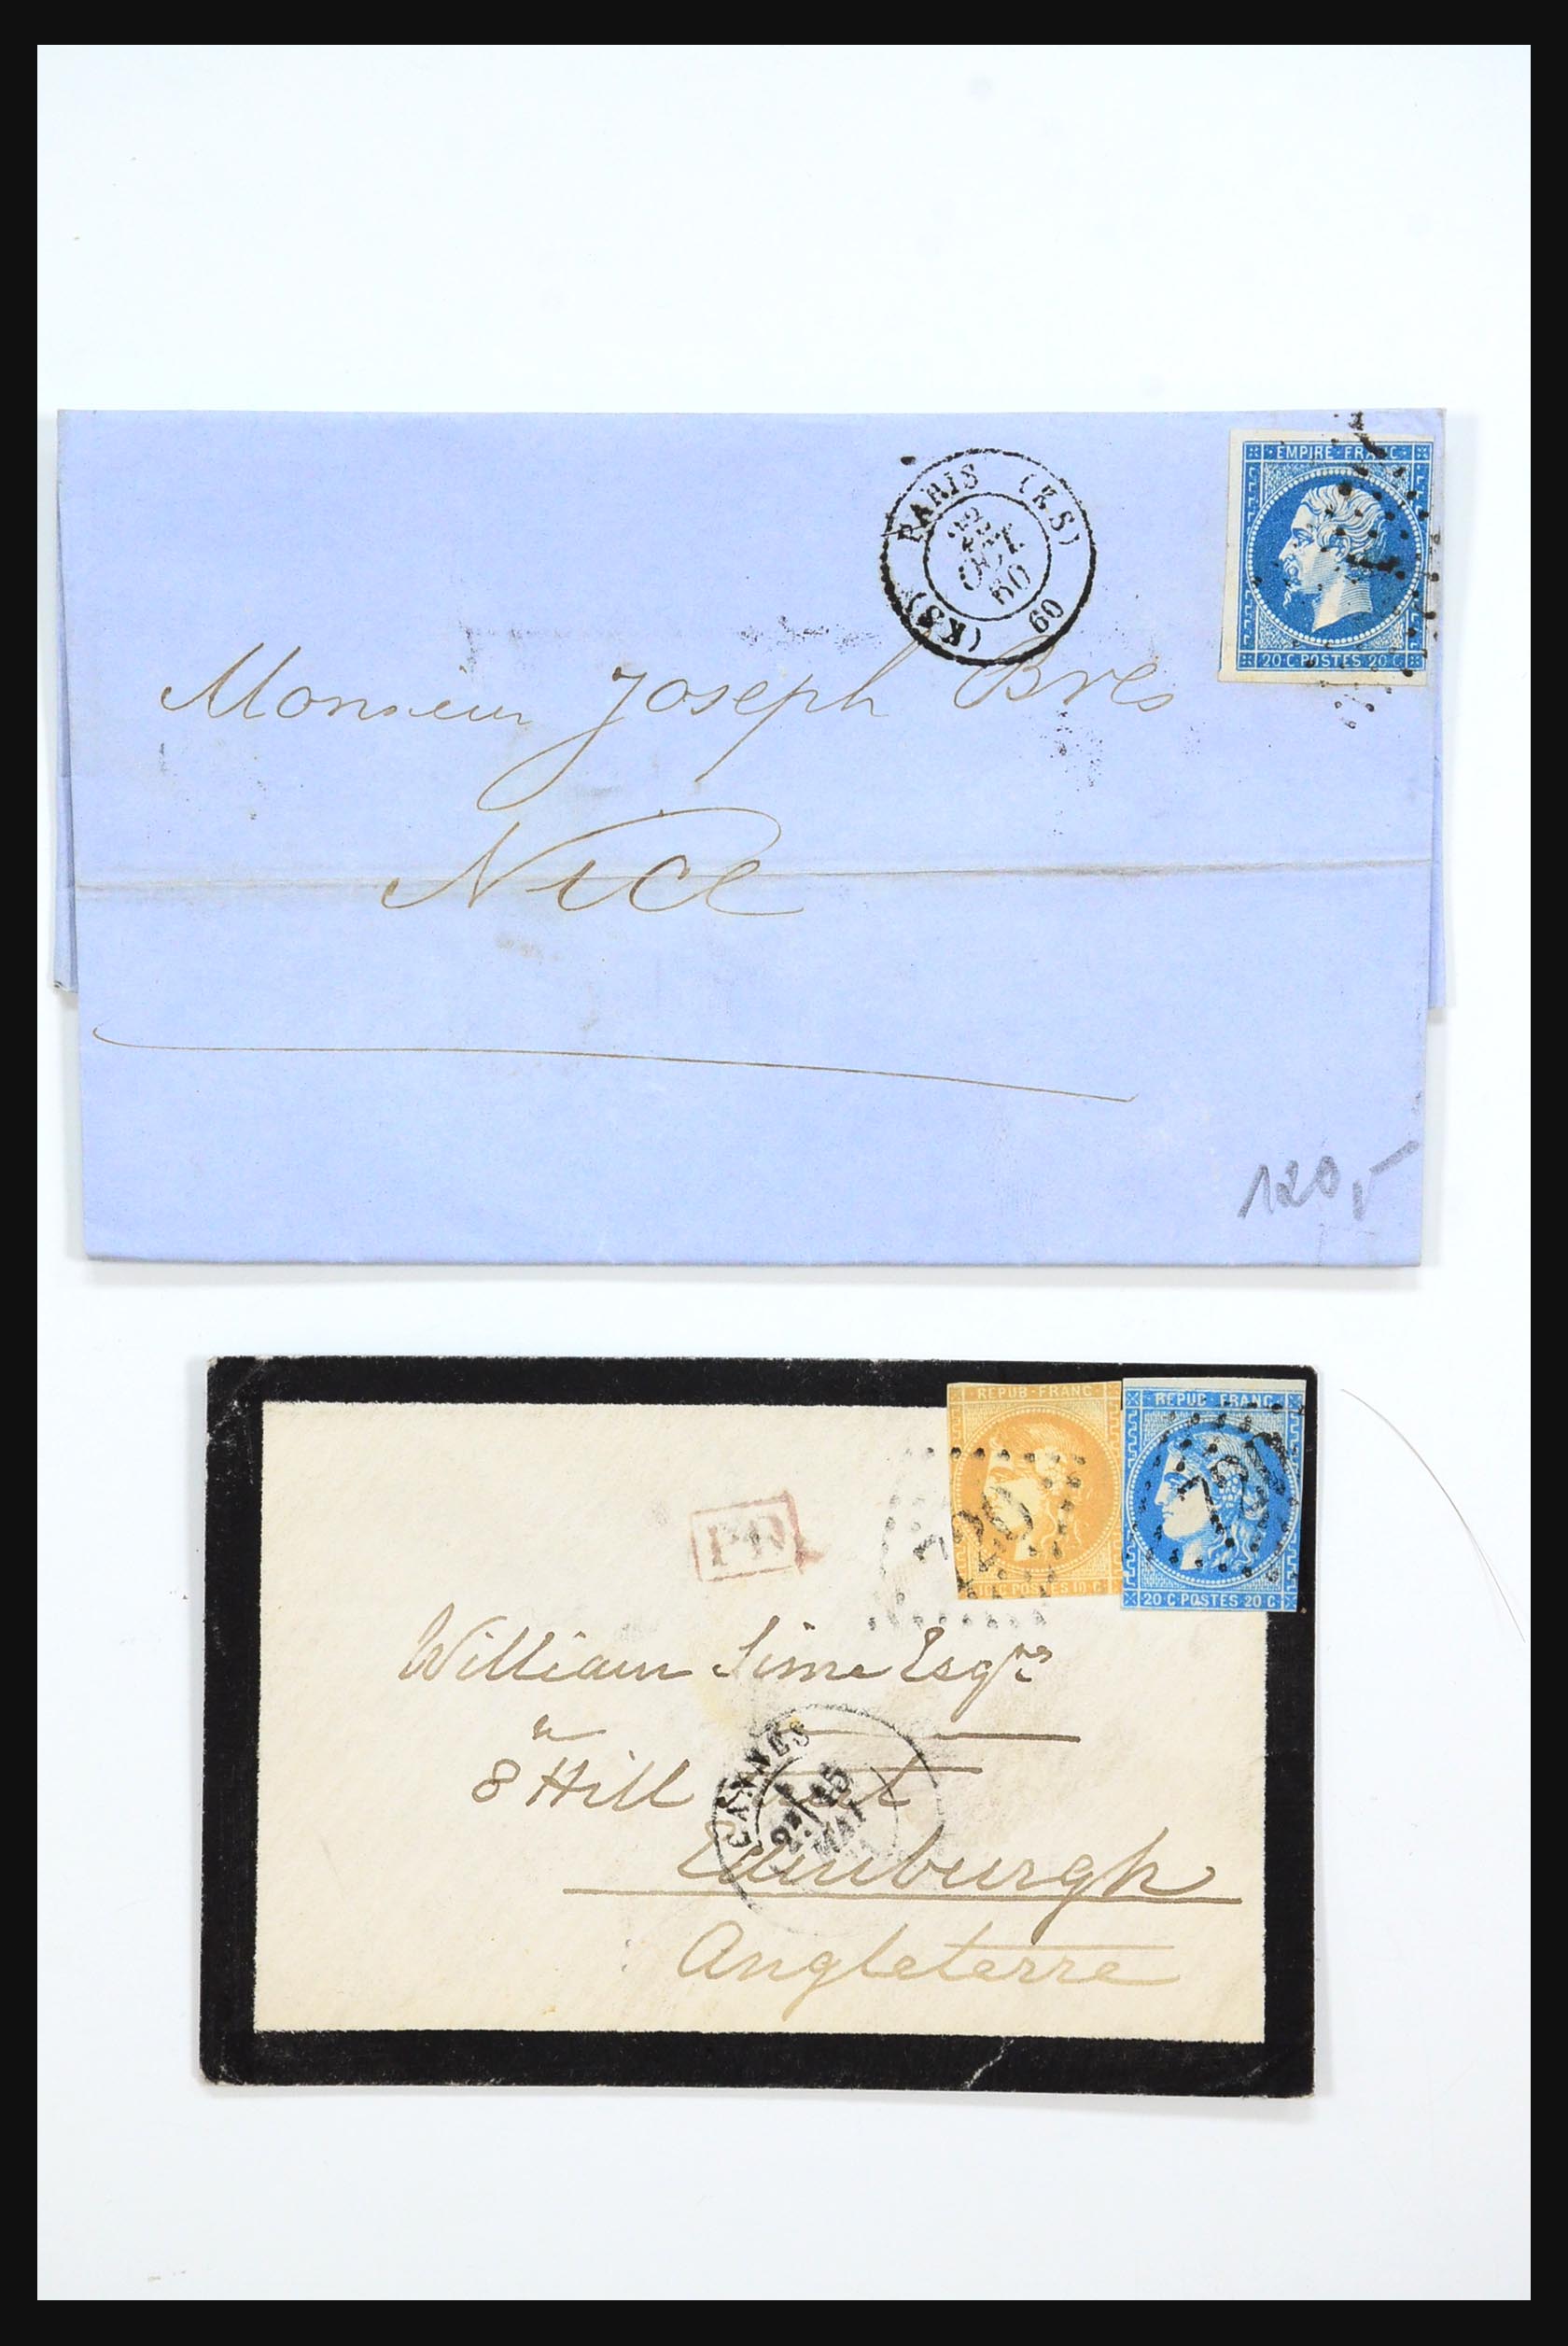 PARIS (KS)
OCT
60
(KS) 60
EMPIRE·FRANC
20·C·POSTES·20·C
Monsieur Joseph Bres
Nice
120,-
REPUB·FRANC
10·C·POSTES·10·C
REPUB·FRANC
20·C·POSTES·20·C
PD
William Sime Esqre
8 Hill
CANNES
MAI
Edinburgh
Angleterre